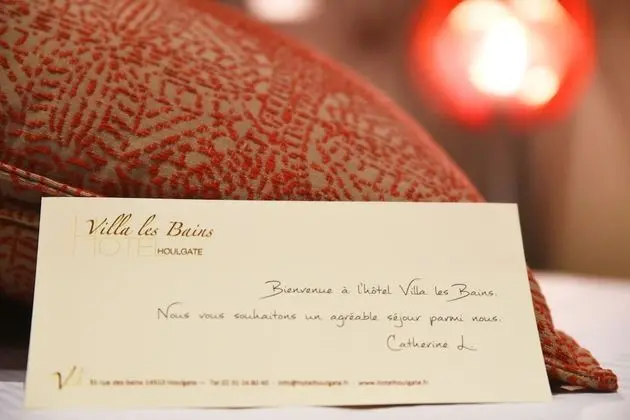 Villa les Bains
HOTEL HOULGATE
Bienvenue à l'hôtel Villa les Bains.
Nous vous souhaitons un agréable séjour parmi nous.
Catherine L
rue des Bains 14510 Houlgate — Tel info@hotelhoulgate.fr - www.hotelhoulgate.fr